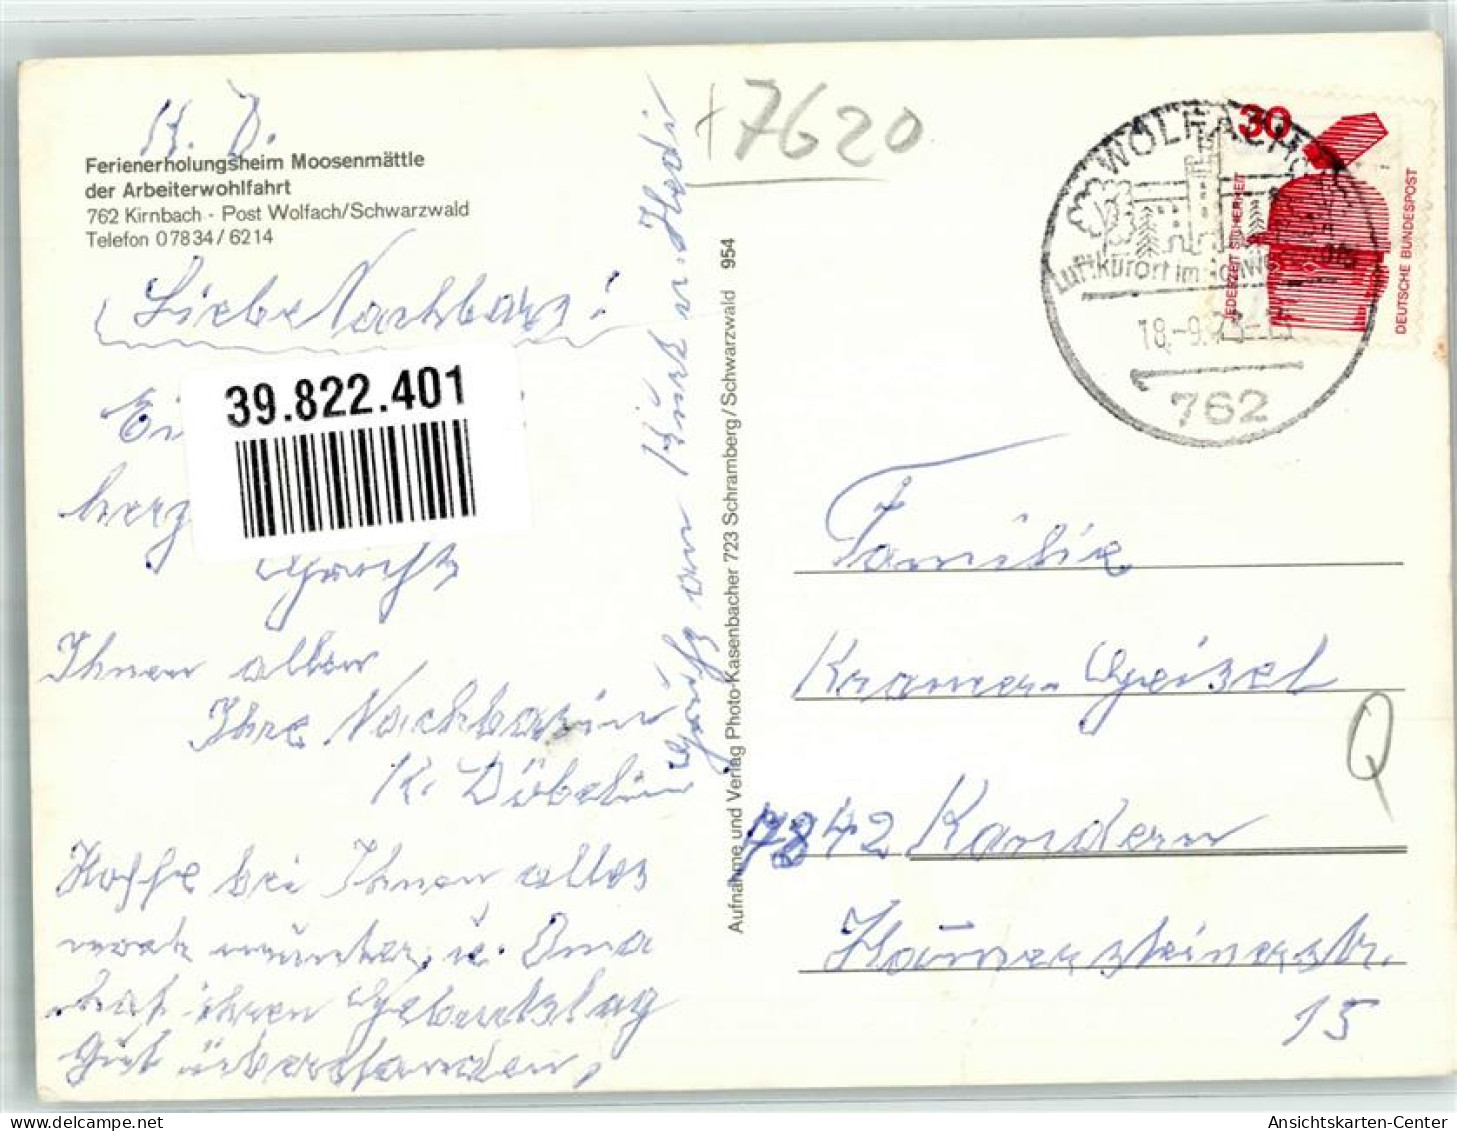 Ferienerholungsheim Moosenmättle
der Arbeiterwohlfahrt
762 Kirnbach - Post Wolfach/Schwarzwald
Telefon 07834/6214
Liebe Nachbarn!
39.822.401
herz
Grüße
Ihnen allen
Ihre Nachbarin
K. Döbelin
Hoffe bei Ihnen alles
noch munter, u. Oma
hat ihren Geburtstag
gut überstanden,
Gruß an Kurt u. Hedi
Aufnahme und Verlag Photo-Kasenbacher 723 Schramberg/Schwarzwald 954
+7620
WOLFACH
Luftkurort im Schwarzwald
18.-9.
762
30
JEDERZEIT SICHERHEIT
DEUTSCHE BUNDESPOST
Familie
Kramer-Geisel
7842 Kandern
Hammersteinerstr.
15
Q
Ansichtskarten-Center